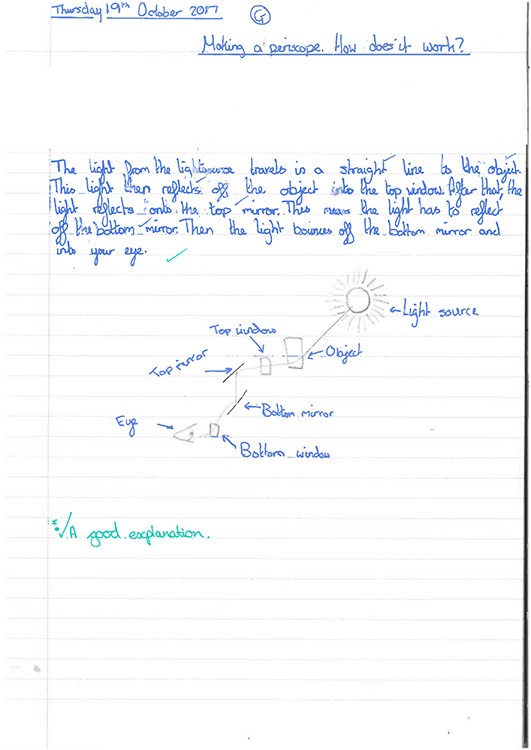 Thursday 19th October 2017
G
Making a periscope. How does it work?
The light from the lightsource travels in a straight line to the object.
This light then reflects off the object into the top window. After that, the
light reflects onto the top mirror. This means the light has to reflect
off the bottom mirror. Then the light bounces off the bottom mirror and
into your eye.
Light source
Top window
Object
Top mirror
Bottom mirror
Eye
Bottom window
A good explanation.